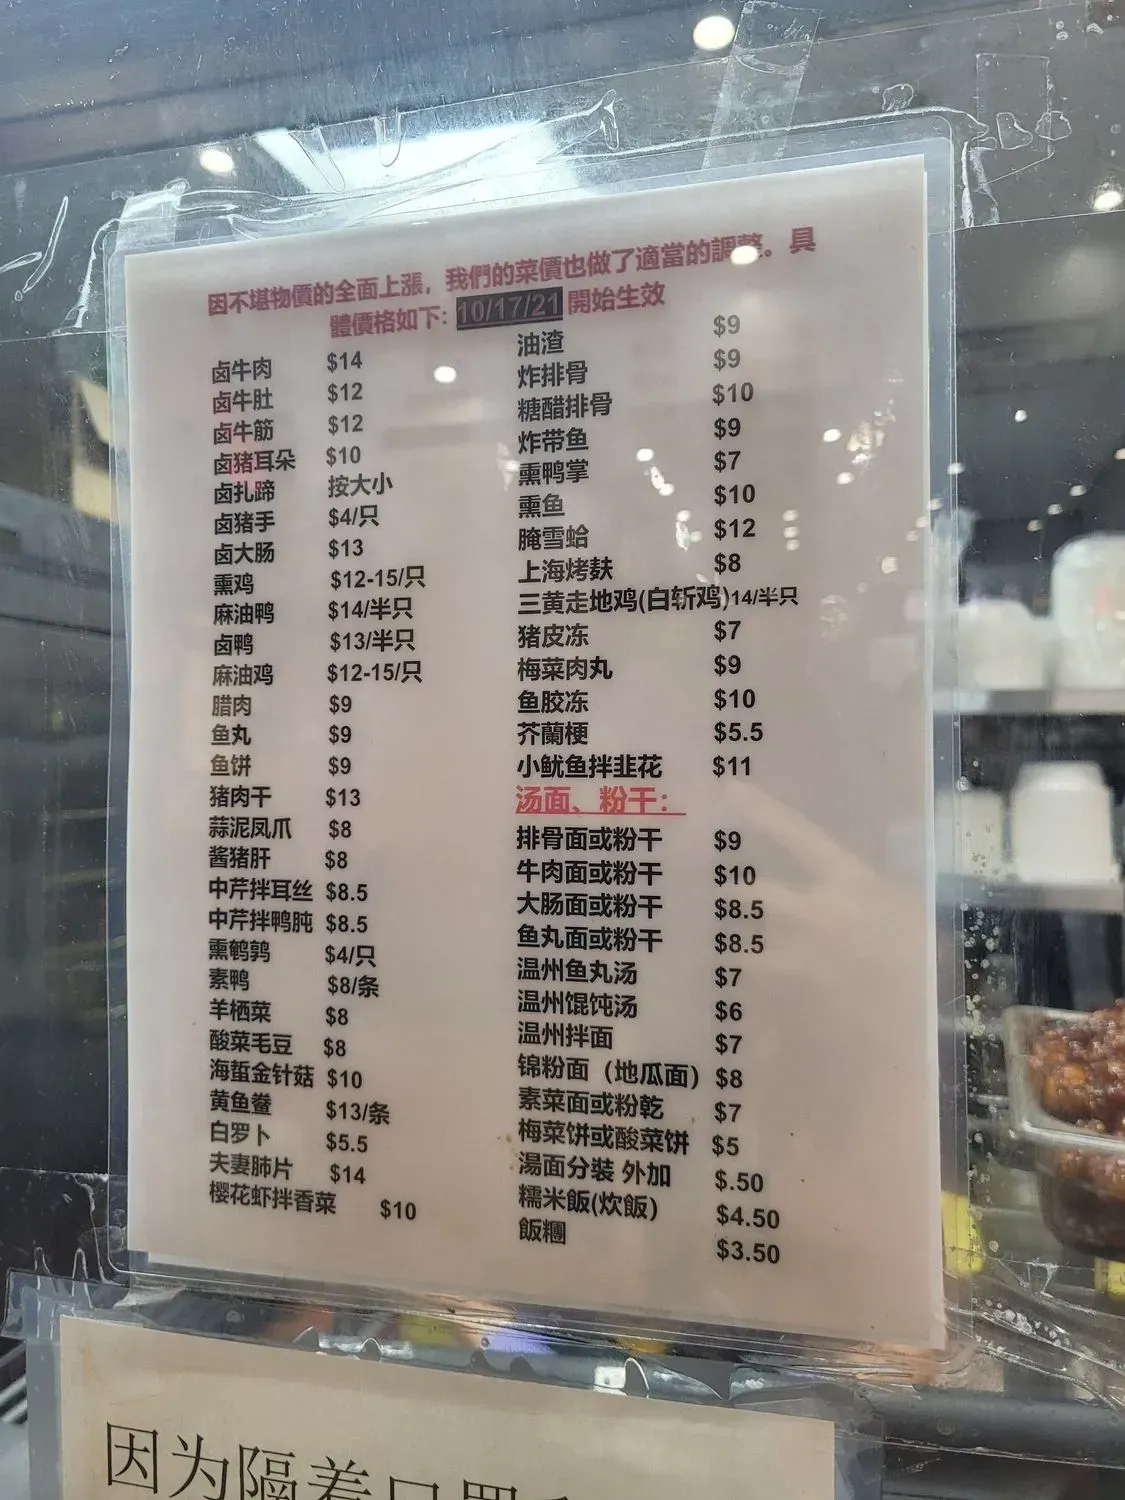 因不堪物價的全面上漲，我們的菜價也做了適當的調整。具
體價格如下: 10/17/21 開始生效
卤牛肉 $14
卤牛肚 $12
卤牛筋 $12
卤猪耳朵 $10
卤扎蹄 按大小
卤猪手 $4/只
卤大肠 $13
熏鸡 $12-15/只
麻油鸭 $14/半只
卤鸭 $13/半只
麻油鸡 $12-15/只
腊肉 $9
鱼丸 $9
鱼饼 $9
猪肉干 $13
蒜泥凤爪 $8
酱猪肝 $8
中芹拌耳丝 $8.5
中芹拌鸭肫 $8.5
熏鹌鹑 $4/只
素鸭 $8/条
羊栖菜 $8
酸菜毛豆 $8
海蜇金针菇 $10
黄鱼鲞 $13/条
白罗卜 $5.5
夫妻肺片 $14
樱花虾拌香菜 $10
油渣 $9
炸排骨 $9
糖醋排骨 $10
炸带鱼 $9
熏鸭掌 $7
熏鱼 $10
腌雪蛤 $12
上海烤麸 $8
三黄走地鸡(白斩鸡)14/半只
猪皮冻 $7
梅菜肉丸 $9
鱼胶冻 $10
芥蘭梗 $5.5
小鱿鱼拌韭花 $11
汤面、粉干：
排骨面或粉干 $9
牛肉面或粉干 $10
大肠面或粉干 $8.5
鱼丸面或粉干 $8.5
温州鱼丸汤 $7
温州馄饨汤 $6
温州拌面 $7
锦粉面（地瓜面） $8
素菜面或粉乾 $7
梅菜饼或酸菜饼 $5
湯面分裝 外加 $.50
糯米飯(炊飯) $4.50
飯糰 $3.50
因为隔着口罩